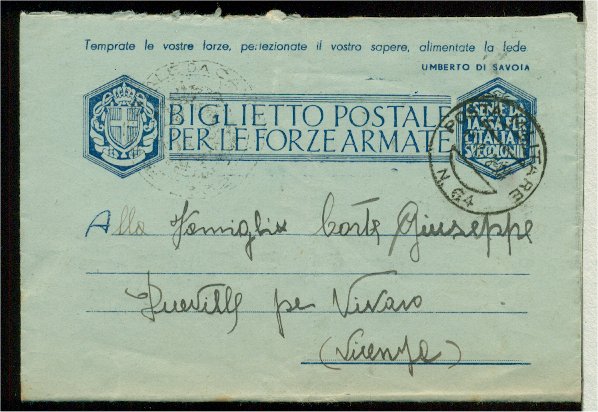 Temprate le vostre forze, perfezionate il vostro sapere, alimentate la fede
UMBERTO DI SAVOIA
BIGLIETTO POSTALE
PER LE FORZE ARMATE
ESENTE DA
TASSA PER
L'ITALIA E
SVE COLONIE
POSTA MILITARE
N. 64
Alla Famiglia Corte Giuseppe
per Vivaro
(Vicenza)